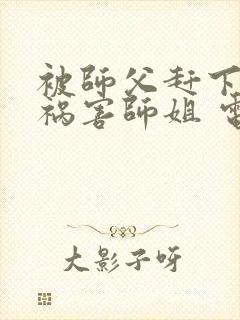 被師父赶下
祸害師姐
大影子呀